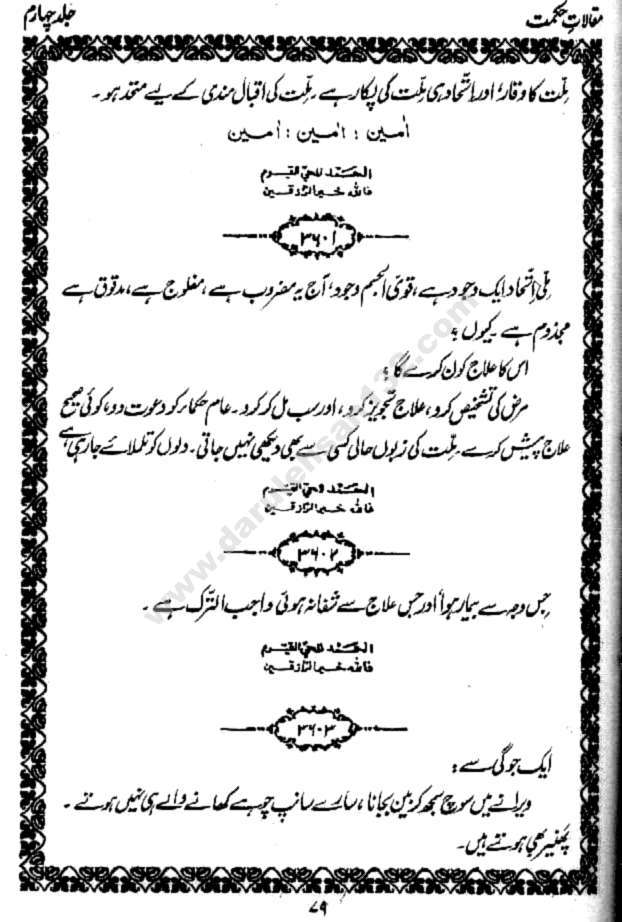 مقالات حکمت
جلد چہارم
ملّت کا وقار، اور اتّحاد ہی ملّت کی پکار ہے۔ ملّت کی اقبال مندی کے لیے متحد ہو۔
اٰمین : اٰمین : اٰمین
الحَمْد للحیّ القیّوم
فاللہ خیر الرّازقین
۳۶۰۱
ملّی اتّحاد ایک وجود ہے، قوی الجسم وجود، آج یہ مضروب ہے، مفلوج ہے، مدقوق ہے
مجذوم ہے۔ کیوں ؟
اس کا علاج کون کرے گا ؟
مرض کی تشخیص کرو، علاج تجویز کرو، اور سب مل کر کرو۔ عام حکماء کو دعوت دو، کوئی صحیح
علاج پیش کرے۔ ملّت کی زبوں حالی کسی سے بھی دیکھی نہیں جاتی۔ دلوں کو تلملائے جا رہی ہے
الحَمْد للحیّ القیّوم
فاللہ خیر الرّازقین
۳۶۰۲
جس وجہ سے بیمار ہوا اور جس علاج سے شفا نہ ہوئی واجب التّرک ہے۔
الحَمْد للحیّ القیّوم
فاللہ خیر الرّازقین
۳۶۰۳
ایک جوگی سے :
ویرانے میں سوچ سمجھ کر بین بجانا، سارے سانپ چوہے کھانے والے ہی نہیں ہوتے۔
پھنیر بھی ہوتے ہیں۔
۷۹